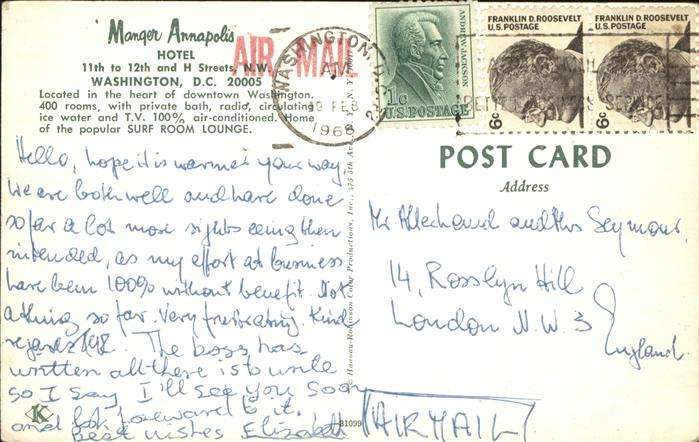 Manger Annapolis
HOTEL
11th to 12th and H Streets, N.W.
WASHINGTON, D.C. 20005
Located in the heart of downtown Washington.
400 rooms, with private bath, radio, circulating
ice water and T.V. 100% air-conditioned. Home
of the popular SURF ROOM LOUNGE.
AIR MAIL
WASHINGTON, D.C.
AM
9 FEB
1968
ANDREW JACKSON
1c
U.S. POSTAGE
FRANKLIN D. ROOSEVELT
U.S. POSTAGE
6c
FRANKLIN D. ROOSEVELT
U.S. POSTAGE
6c
Hello, hope it is warmer your way.
We are both well and have done
so far a lot more sights eeing then
intended, as my effort at business
have been 100% without benefit. Not
a thing so far. Very frustrating. Kind
regards The boss has
written all there is to write
so I say I'll see you soon
and look foreward to it.
Best wishes Elizabeth
POST CARD
Address
Mr and Mrs Seymour,
14, Rosslyn Hill
London N.W.3
England.
AIRMAIL
K
B1099